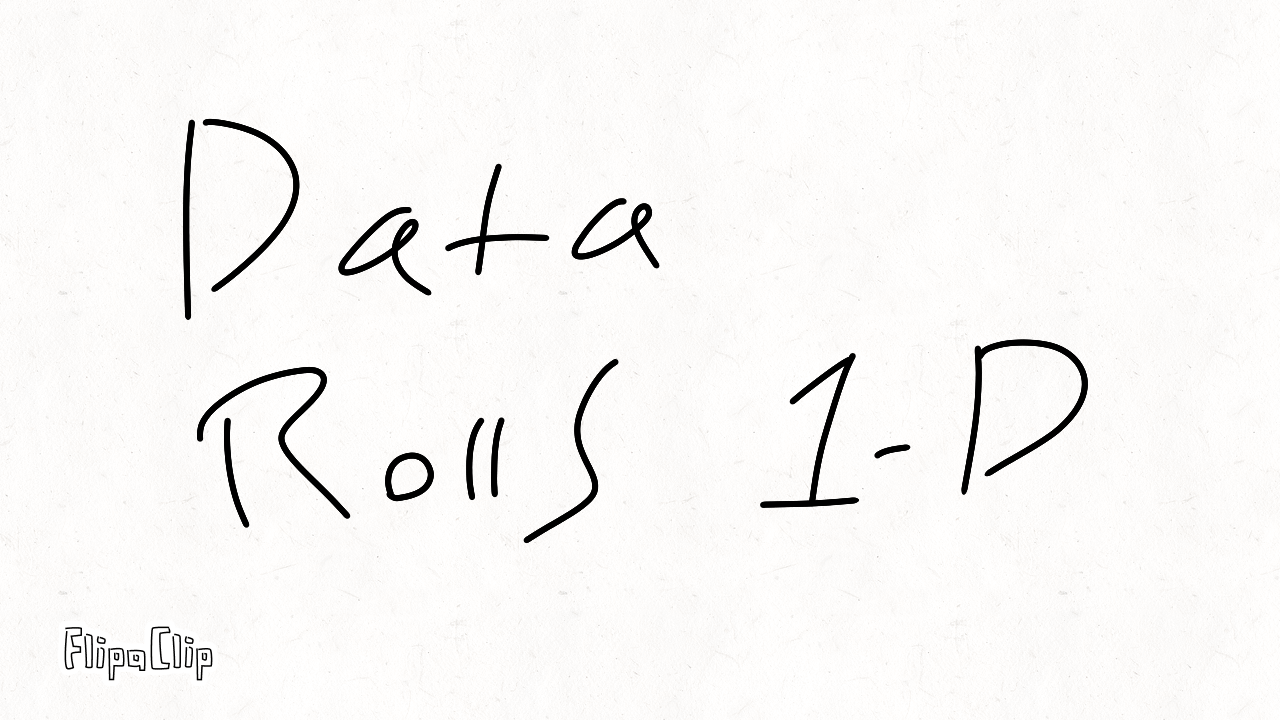 Data
Rolls 1-D
FlipaClip